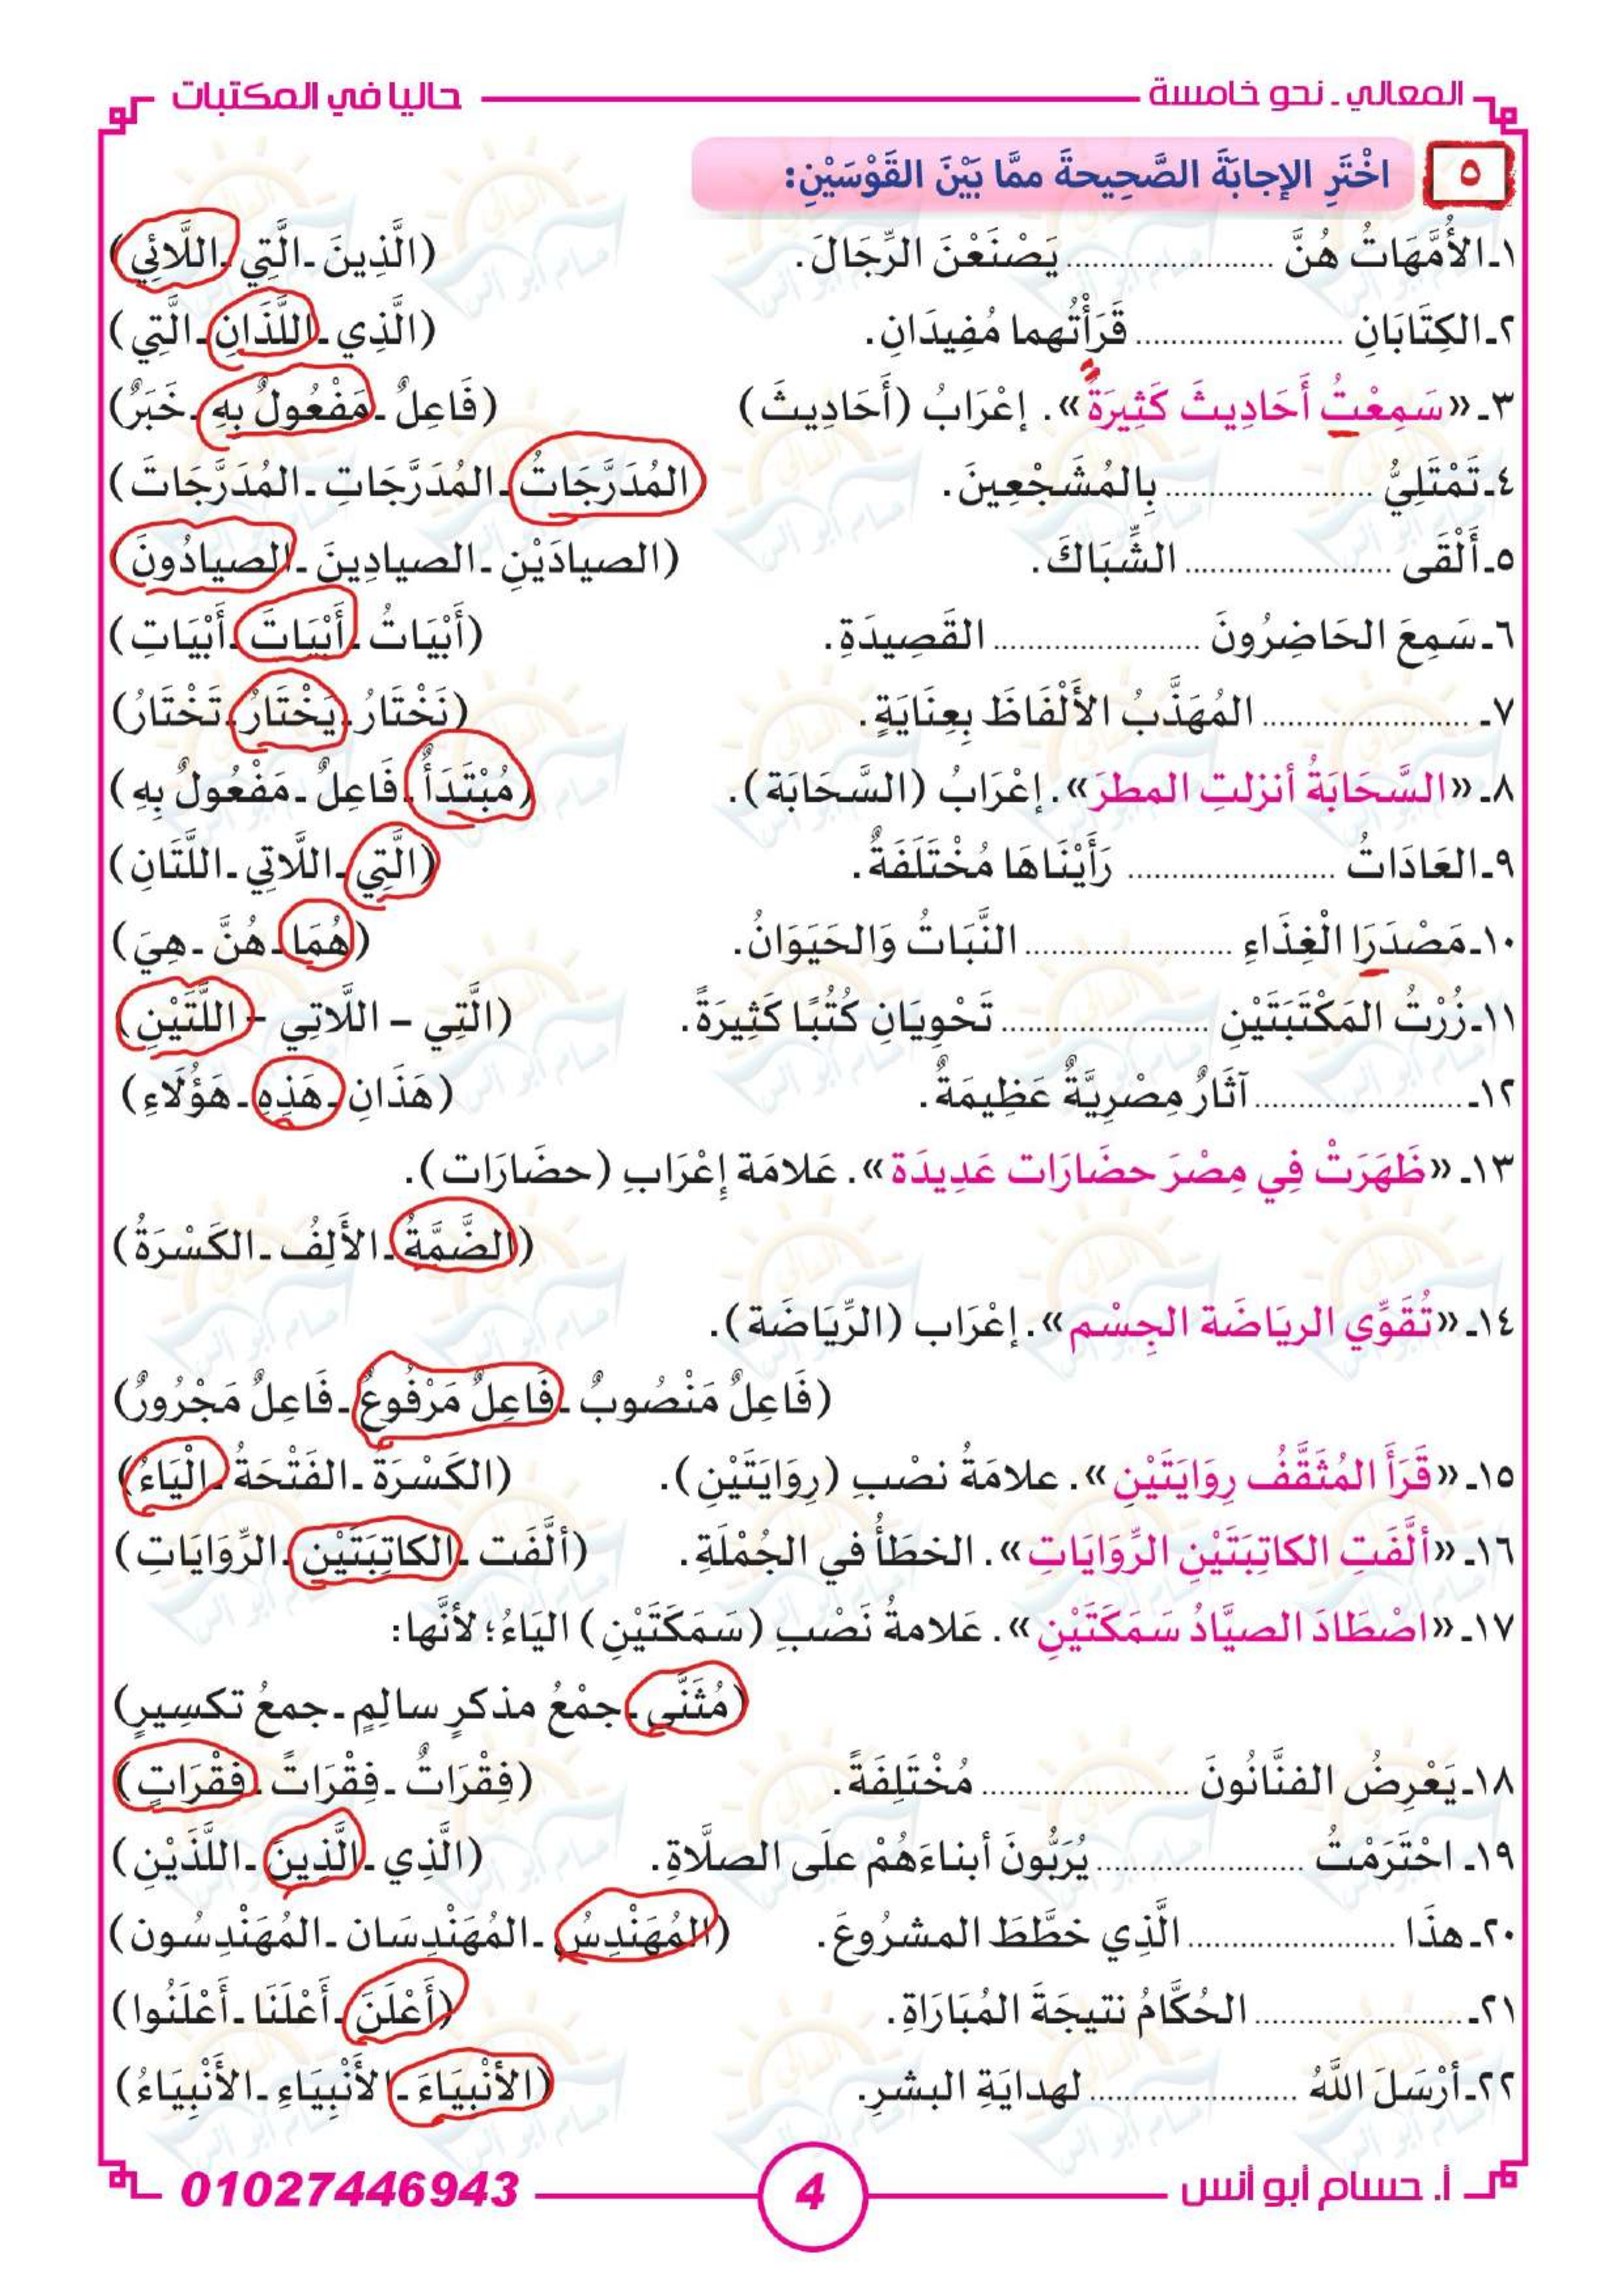 المعالي ـ نحو خامسة
حاليا في المكتبات
٥ اخْتَرِ الإجابَةَ الصَّحِيحةَ ممَّا بَيْنَ القَوْسَيْنِ:
١ـ الأُمَّهَاتُ هُنَّ ........................ يَصْنَعْنَ الرِّجَالَ. (الَّذِينَ ـ الَّتِي ـ اللَّائِي)
٢ـ الكِتَابَانِ ........................ قَرَأْتُهما مُفِيدَانِ. (الَّذِي ـ اللَّذَانِ ـ الَّتِي)
٣ـ «سَمِعْتُ أَحَادِيثَ كَثِيرَةً». إعْرَابُ (أَحَادِيثَ) (فَاعِلٌ ـ مَفْعُولٌ بِهِ ـ خَبَرٌ)
٤ـ تَمْتَلِيُّ ........................ بِالمُشَجْعِينَ. (المُدَرَّجَاتُ ـ المُدَرَّجَاتِ ـ المُدَرَّجَاتَ)
٥ـ أَلْقَى ........................ الشِّبَاكَ. (الصيادَيْنِ ـ الصيادِينَ ـ الصيادُونَ)
٦ـ سَمِعَ الحَاضِرُونَ ........................ القَصِيدَةِ. (أَبْيَاتُ ـ أَبْيَاتَ ـ أَبْيَاتِ)
٧ـ ........................ المُهَذَّبُ الأَلْفَاظَ بِعِنَايَةٍ. (نَخْتَارُ ـ يَخْتَارُ ـ تَخْتَارُ)
٨ـ «السَّحَابَةُ أنزلتِ المطرَ». إعْرَابُ (السَّحَابَة). (مُبْتَدَأٌ ـ فَاعِلٌ ـ مَفْعُولٌ بِهِ)
٩ـ العَادَاتُ ........................ رَأَيْنَاهَا مُخْتَلَفَةٌ. (الَّتِي ـ اللَّاتِي ـ اللَّتَانِ)
١٠ـ مَصْدَرَا الْغِذَاءِ ........................ النَّبَاتُ وَالحَيَوَانُ. (هُمَا ـ هُنَّ ـ هِيَ)
١١ـ زُرْتُ المَكْتَبَتَيْنِ ........................ تَحْوِيَانِ كُتُبًا كَثِيرَةً. (الَّتِي – اللَّاتِي – اللَّتَيْنِ)
١٢ـ ........................ آثَارٌ مِصْرِيَّةٌ عَظِيمَةٌ. (هَذَانِ ـ هَذِهِ ـ هَؤُلَاءِ)
١٣ـ «ظَهَرَتْ فِي مِصْرَ حضَارَات عَدِيدَة». عَلامَة إعْرَابِ (حضَارَات).
(الضَّمَّةُ ـ الأَلِفُ ـ الكَسْرَةُ)
١٤ـ «تُقَوِّي الريَاضَة الجِسْم». إعْرَاب (الرِّيَاضَة).
(فَاعِلٌ مَنْصُوبٌ ـ فَاعِلٌ مَرْفُوعٌ ـ فَاعِلٌ مَجْرُورٌ)
١٥ـ «قَرَأَ المُثَقَّفُ رِوَايَتَيْنِ». علامَةُ نصْبِ (رِوَايَتَيْنِ). (الكَسْرَةُ ـ الفَتْحَةُ ـ الْيَاءُ)
١٦ـ «ألَّفَتِ الكاتِبَتَيْنِ الرِّوَايَاتِ». الخطَأُ في الجُمْلَةِ. (ألَّفَت ـ الكاتِبَتَيْنِ ـ الرِّوَايَاتِ)
١٧ـ «اصْطَادَ الصيَّادُ سَمَكَتَيْنِ». عَلامةُ نَصْبِ (سَمَكَتَيْنِ) اليَاءُ؛ لأنَّها:
(مُثَنَّى ـ جمْعُ مذكرٍ سالِمٍ ـ جمعُ تكسِيرٍ)
١٨ـ يَعْرِضُ الفنَّانُونَ ........................ مُخْتَلِفَةً. (فِقْرَاتٌ ـ فِقْرَاتً ـ فِقْرَاتٍ)
١٩ـ احْتَرَمْتُ ........................ يُرَبُّونَ أبناءَهُمْ علَى الصلَّاةِ. (الَّذِي ـ الَّذِينَ ـ اللَّذَيْنِ)
٢٠ـ هذَا ........................ الَّذِي خطَّطَ المشرُوعَ. (المُهَنْدِسُ ـ المُهَنْدِسَان ـ المُهَنْدِسُون)
٢١ـ ........................ الحُكَّامُ نتيجَةَ المُبَارَاةِ. (أَعْلَنَ ـ أَعْلَنَا ـ أَعْلَنُوا)
٢٢ـ أرْسَلَ اللَّهُ ........................ لهدايَةِ البشرِ. (الأنْبِيَاءَ ـ الأَنْبِيَاءِ ـ الأَنْبِيَاءُ)
أ. حسام أبو أنس
4
01027446943